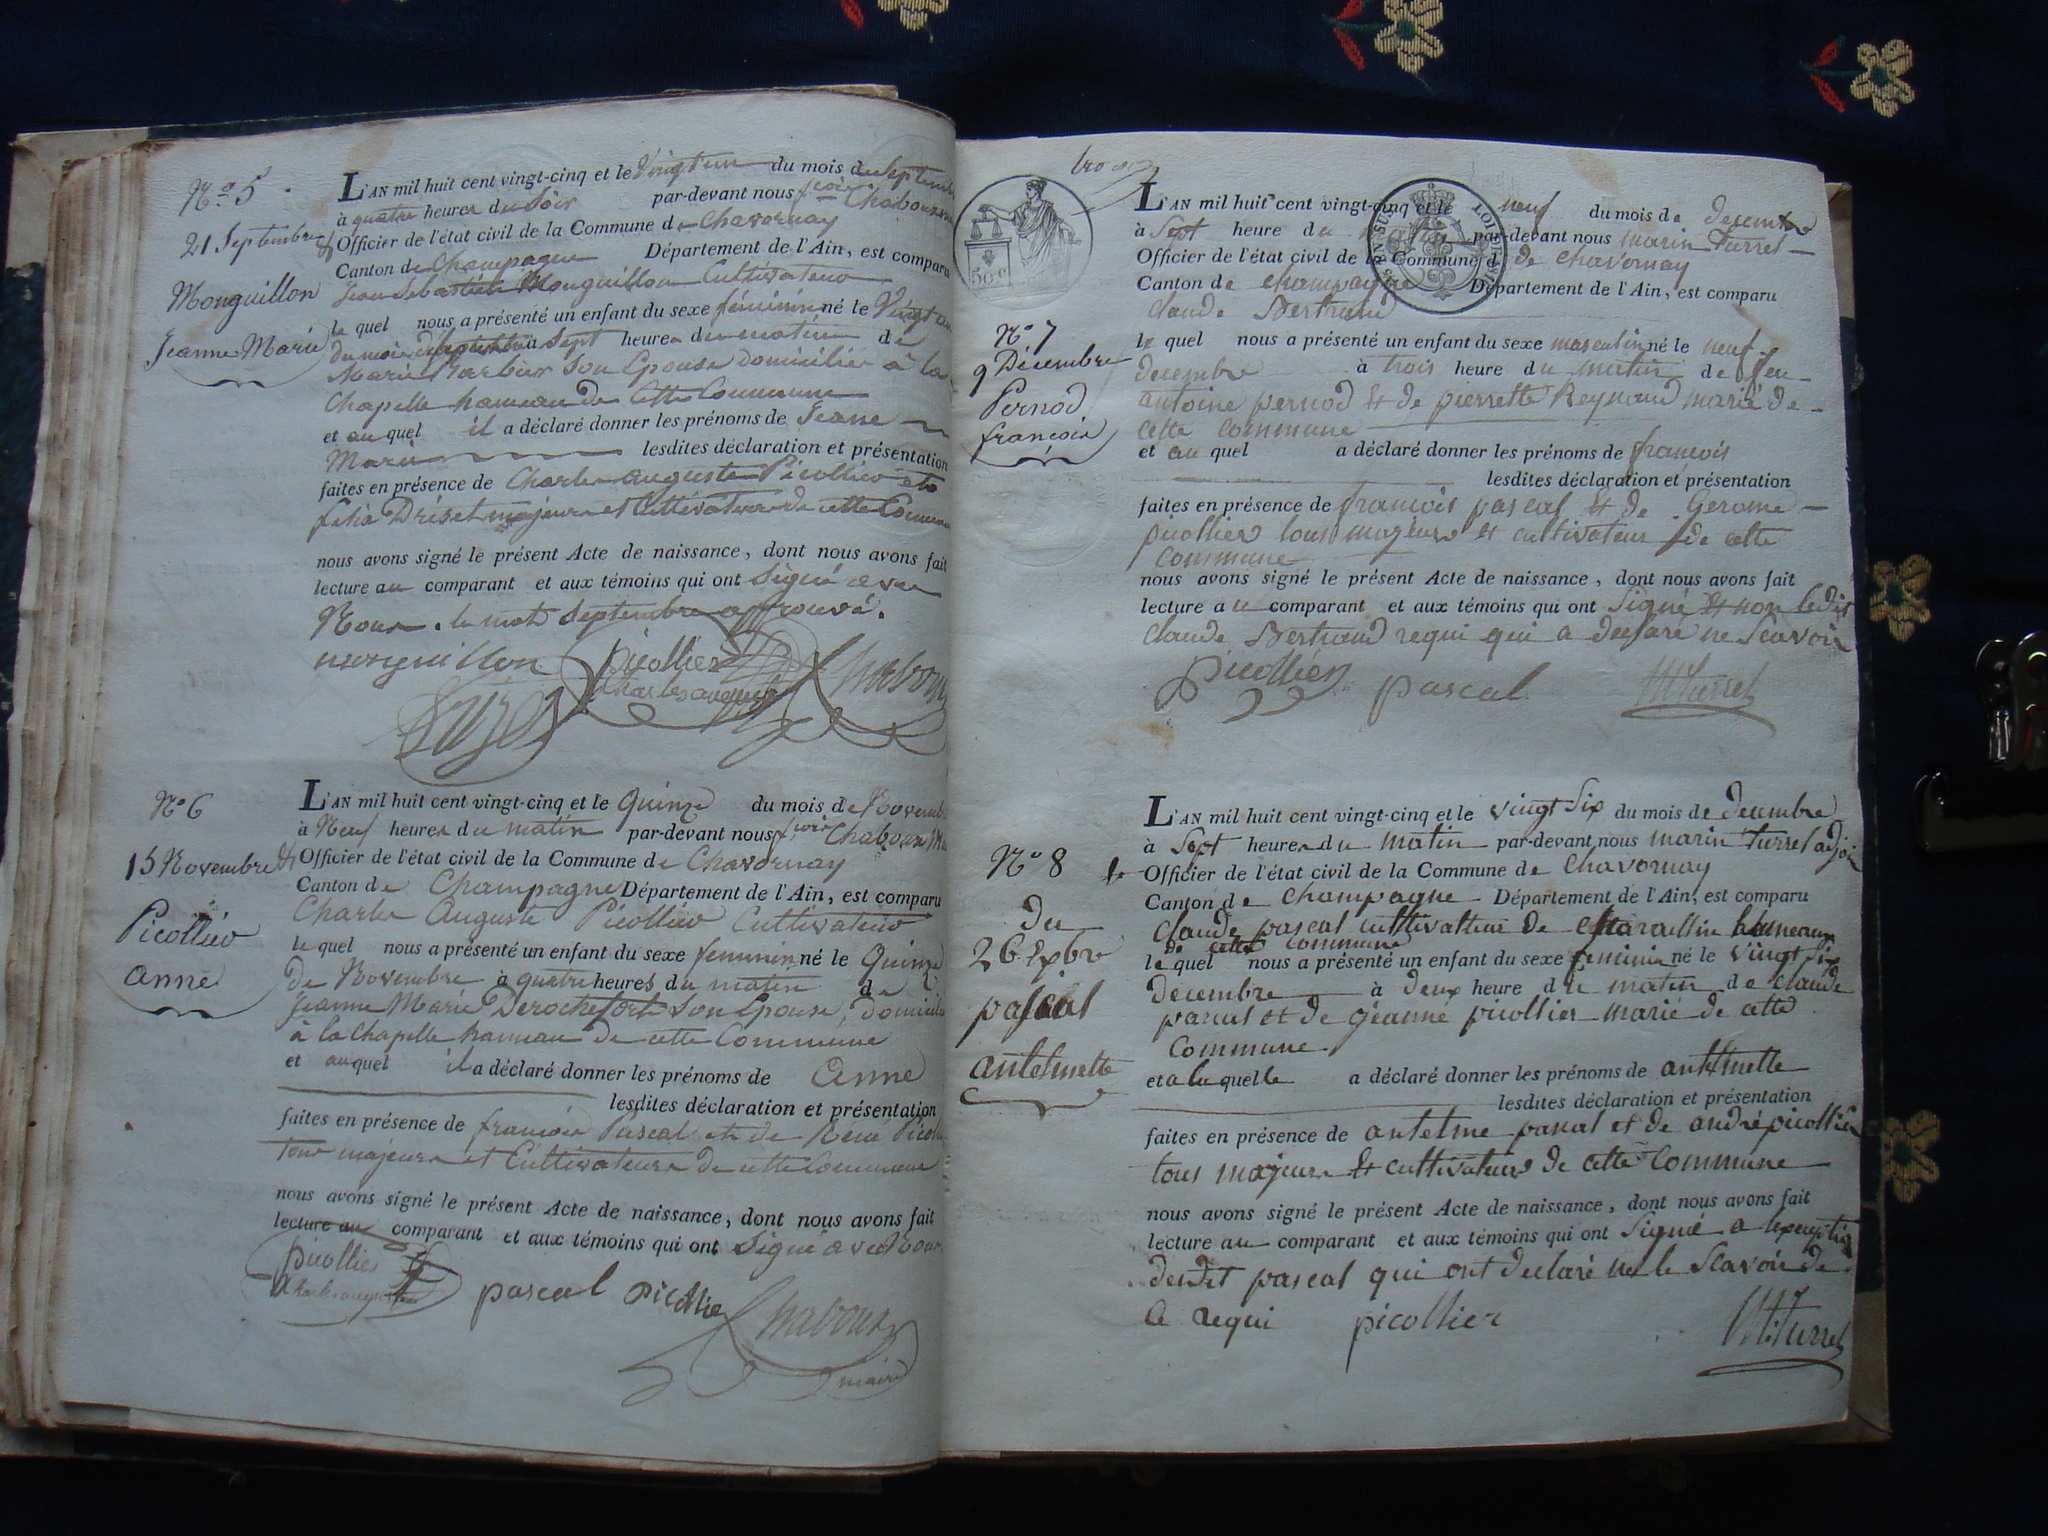 N.º 5
21 Septembre
Monguillon
Jeanne Marie
L'AN mil huit cent vingt-cinq et le vingt un du mois de Septembre
à quatre heures du Soir par-devant nous Chaboux
Officier de l'état civil de la Commune de Chavornay
Canton de Champagne Département de l'Ain, est comparu
Jean Sebastien Monguillon Cultivateur
le quel nous a présenté un enfant du sexe féminin né le vingt un
du mois de Septembre à Sept heures du matin de
Marie Barbier Son Epouse Domiciliés à la
Chapelle hameau de Cette Commune
et au quel il a déclaré donner les prénoms de Jeane
Marie lesdites déclaration et présentation
faites en présence de Charles auguste Picollier et de
felix Driset majeurs et Cultivateurs de cette Commune
nous avons signé le présent Acte de naissance, dont nous avons fait
lecture au comparant et aux témoins qui ont Signé avec
Nous. le mot Septembre approuvé.
monguillon picollier Chaboux
Charles auguste
N.º 6
15 Novembre
Picollier
anne
L'AN mil huit cent vingt-cinq et le Quinze du mois de Novembre
à Neuf heures du matin par-devant nous Chaboux
Officier de l'état civil de la Commune de Chavornay
Canton de Champagne Département de l'Ain, est comparu
Charles Auguste Picollier Cultivateur
le quel nous a présenté un enfant du sexe feminin né le Quinze
de Novembre à quatre heures du matin de
Jeanne Marie Derochefort Son Epouse, Domicilié
à la Chapelle hameau de cette Commune
et au quel il a déclaré donner les prénoms de Anne
lesdites déclaration et présentation
faites en présence de francois Pascal et de René Picollier
tous majeurs et Cultivateurs de cette Commune
nous avons signé le présent Acte de naissance, dont nous avons fait
lecture au comparant et aux témoins qui ont Signé avec Nous.
picollier pascal picollie Chaboux
Charles auguste
maire
50 c
N.º 7
9 Décembre
Pernod
françois
L'AN mil huit cent vingt-cinq et le neuf du mois de decembre
à Sept heure du matin par-devant nous marin Turrel
Officier de l'état civil de la Commune d de chavornay
Canton de champagne Département de l'Ain, est comparu
claude Bertrand
le quel nous a présenté un enfant du sexe masculin né le neuf
decembre à trois heure du matin de feu
antoine pernod et de pierrette Reynaud marié de
cette commune
et au quel a déclaré donner les prénoms de francois
lesdites déclaration et présentation
faites en présence de francois pascal et de Gerome
picollier tous majeurs et cultivateur de cette
commune
nous avons signé le présent Acte de naissance, dont nous avons fait
lecture au comparant et aux témoins qui ont Signé et non ledit
claude Bertrand requi qui a declaré ne Scavoir
picollier pascal M Turrel
N.º 8
du
26 Xbre
pascal
anthelmette
L'AN mil huit cent vingt-cinq et le vingt Six du mois de decembre
à Sept heures du matin par-devant nous marin turrel adjoin
Officier de l'état civil de la Commune de chavornay
Canton de champagne Département de l'Ain, est comparu
claude pascal cultivatteur de hameaux
de cette commune
le quel nous a présenté un enfant du sexe feminin né le vingt Six
decembre à deux heure du matin de claude
pascal et de jeanne picollier marié de cette
commune
et a la quelle a déclaré donner les prénoms de anthelmette
lesdites déclaration et présentation
faites en présence de antelme pascal et de andré picollier
tous majeurs et cultivateurs de cette commune
nous avons signé le présent Acte de naissance, dont nous avons fait
lecture au comparant et aux témoins qui ont Signé a lexeption
desdit pascal qui ont declaré ne le Scavoir de
ce requi picollier M Turrel